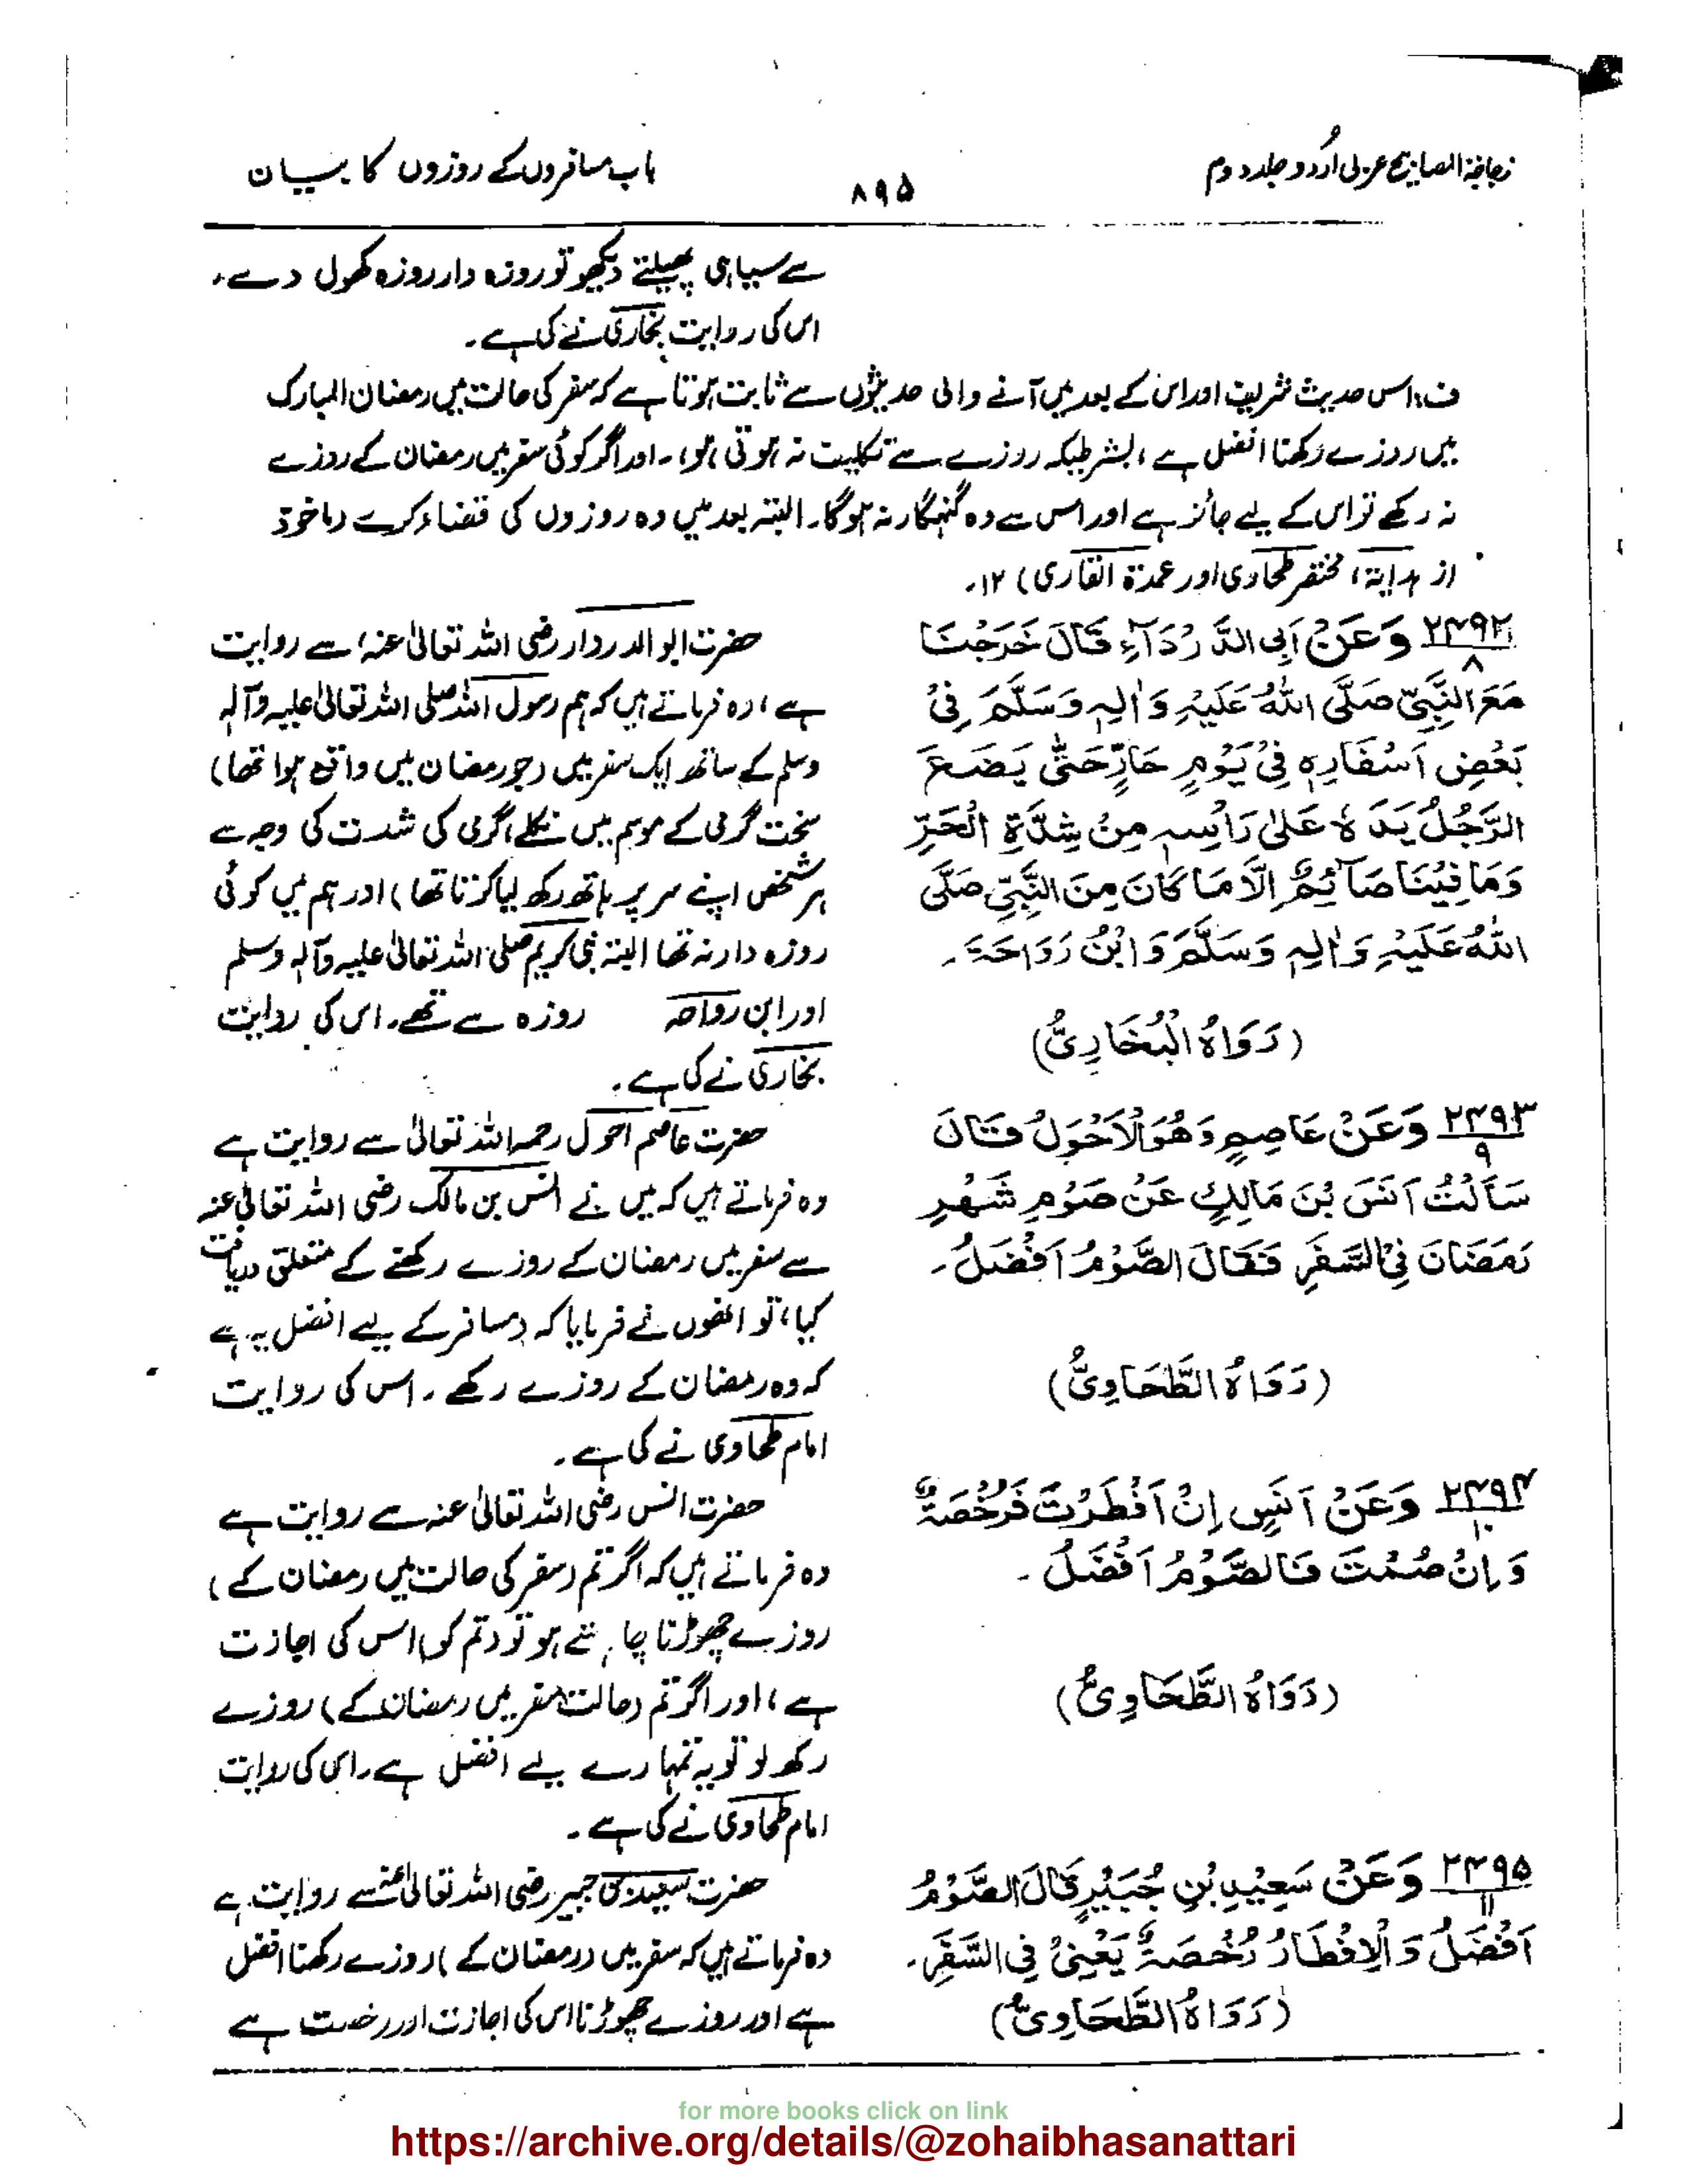 زجاجۃ المصابیح عربی اُردو جلد دوم
۸۹۵
باب مسافروں کے روزوں کا بیان
سے سیاہی پھیلتے دیکھو تو روزہ دار روزہ کھول دے،
اس کی روایت بخاری نے کی ہے۔
ف: اس حدیث شریف اور اس کے بعد میں آنے والی حدیثوں سے ثابت ہوتا ہے کہ سفر کی حالت میں رمضان المبارک
میں روزے رکھنا افضل ہے، بشرطیکہ روزے سے تکلیف نہ ہوتی ہو،۔ اور اگر کوئی سفر میں رمضان کے روزے
نہ رکھے تو اس کے لیے جائز ہے اور اس سے وہ گنہگار نہ ہوگا۔ البتہ بعد میں وہ روزوں کی قضاء کرے (ماخوذ
از ہدایۃ، مختصر طحاوی اور عمدۃ القاری) ۱۲۔
۲۴۹۲/۸ وَعَنْ اَبِی الدَّرْدَآءِ قَالَ خَرَجْنَا
مَعَ النَّبِیِّ صَلَّی اللہُ عَلَیْہِ وَاٰلِہٖ وَسَلَّمَ فِیْ
بَعْضِ اَسْفَارِہٖ فِیْ یَوْمٍ حَارٍّ حَتّٰی یَضَعَ
الرَّجُلُ یَدَہٗ عَلٰی رَاْسِہٖ مِنْ شِدَّۃِ الْحَرِّ
وَمَا فِیْنَا صَآئِمٌ اِلَّا مَا کَانَ مِنَ النَّبِیِّ صَلَّی
اللہُ عَلَیْہِ وَاٰلِہٖ وَسَلَّمَ وَابْنُ رَوَاحَۃَ۔
(رَوَاہُ الْبُخَارِیُّ)
حضرت ابو الدرداء رضی اللہ تعالیٰ عنہ، سے روایت
ہے، وہ فرماتے ہیں کہ ہم رسول اللہ صلی اللہ تعالیٰ علیہ وآلہ
وسلم کے ساتھ ایک سفر میں (جو رمضان میں واقع ہوا تھا)
سخت گرمی کے موسم میں نکلے (گرمی کی شدت کی وجہ سے
ہر شخص اپنے سر پر ہاتھ رکھ لیا کرتا تھا) اور ہم میں کوئی
روزہ دار نہ تھا البتہ نبی کریم صلی اللہ تعالیٰ علیہ وآلہ وسلم
اور ابن رواحہ روزہ سے تھے۔ اس کی روایت
بخاری نے کی ہے۔
۲۴۹۳/۹ وَعَنْ عَاصِمٍ وَھُوَ الْاَحْوَلُ قَالَ
سَاَلْتُ اَنَسَ بْنَ مَالِکٍ عَنْ صَوْمِ شَھْرِ
رَمَضَانَ فِی السَّفَرِ فَقَالَ الصَّوْمُ اَفْضَلُ۔
(رَوَاہُ الطَّحَاوِیُّ)
حضرت عاصم احول رحمہ اللہ تعالیٰ سے روایت ہے
وہ فرماتے ہیں کہ میں نے انس بن مالک رضی اللہ تعالیٰ عنہ
سے سفر میں رمضان کے روزے رکھنے کے متعلق دریافت
کیا، تو انھوں نے فرمایا کہ (مسافر کے لیے افضل یہ ہے
کہ وہ رمضان کے روزے رکھے۔ اس کی روایت
امام طحاوی نے کی ہے۔
۲۴۹۴/۱۰ وَعَنْ اَنَسٍ اِنْ اَفْطَرْتَ فَرُخْصَۃٌ
وَاِنْ صُمْتَ فَالصَّوْمُ اَفْضَلُ۔
(رَوَاہُ الطَّحَاوِیُّ)
حضرت انس رضی اللہ تعالیٰ عنہ سے روایت ہے
وہ فرماتے ہیں کہ اگر تم (سفر کی حالت میں رمضان کے)
روزے چھوڑنا چاہتے ہو تو (تم کو) اس کی اجازت
ہے، اور اگر تم (حالت سفر میں رمضان کے) روزے
رکھ لو تو یہ تمہارے لیے افضل ہے۔ اس کی روایت
امام طحاوی نے کی ہے۔
۲۴۹۵/۱۱ وَعَنْ سَعِیْدِ بْنِ جُبَیْرٍ قَالَ الصَّوْمُ
اَفْضَلُ وَالْاِفْطَارُ رُخْصَۃٌ یَعْنِیْ فِی السَّفَرِ۔
(رَوَاہُ الطَّحَاوِیُّ)
حضرت سعید بن جبیر رضی اللہ تعالیٰ عنہ سے روایت ہے
وہ فرماتے ہیں کہ سفر میں (رمضان کے) روزے رکھنا افضل
ہے اور روزے چھوڑنا اس کی اجازت اور رخصت ہے
for more books click on link
https://archive.org/details/@zohaibhasanattari